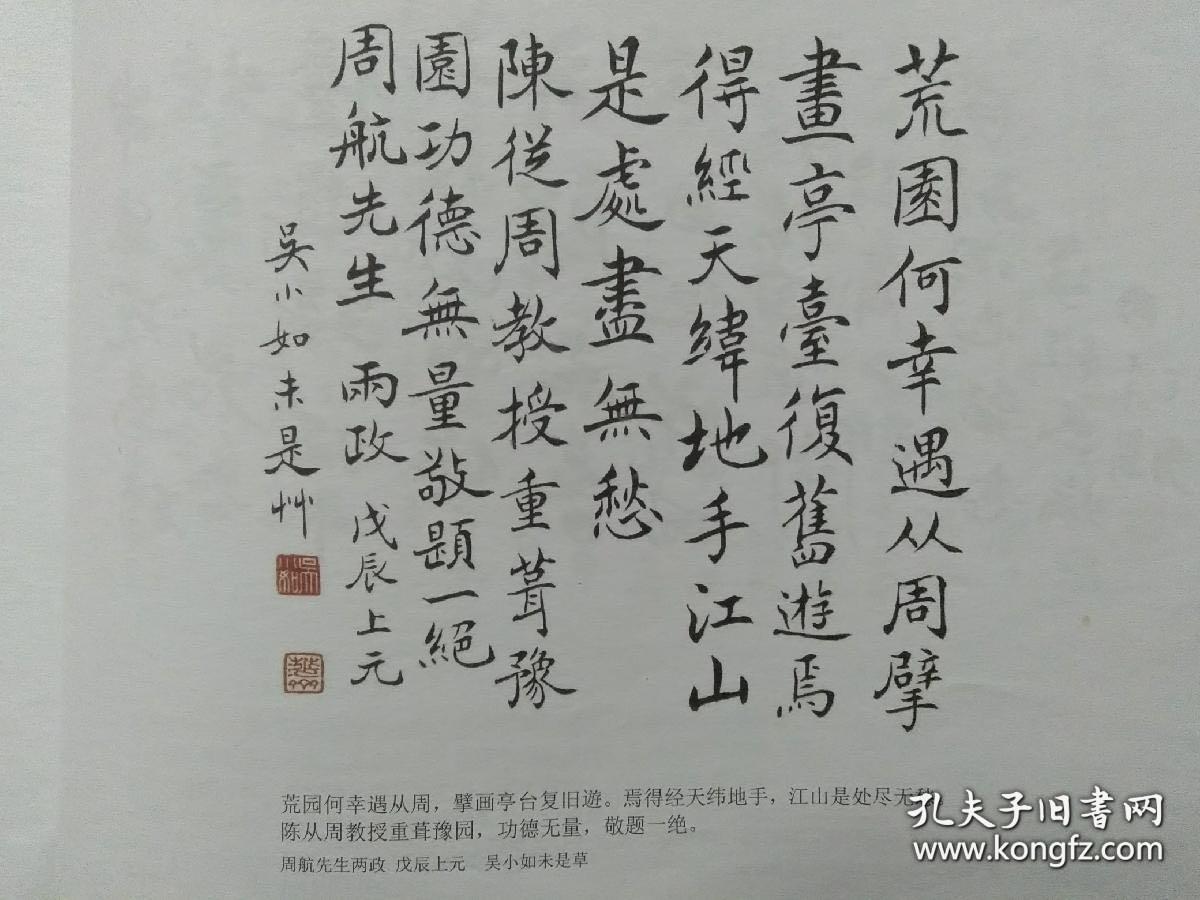 荒園何幸遇从周擘
畫亭臺復舊遊焉
得經天緯地手江山
是處盡無愁
陳從周教授重葺豫
園功德無量敬題一絕
周航先生 兩政 戊辰上元
吳小如未是艸
吳小如
荒园何幸遇从周，擘画亭台复旧遊。焉得经天纬地手，江山是处尽无
陈从周教授重葺豫园，功德无量，敬题一绝。
周航先生两政 戊辰上元 吴小如未是草
孔夫子旧书网
www.kongfz.com